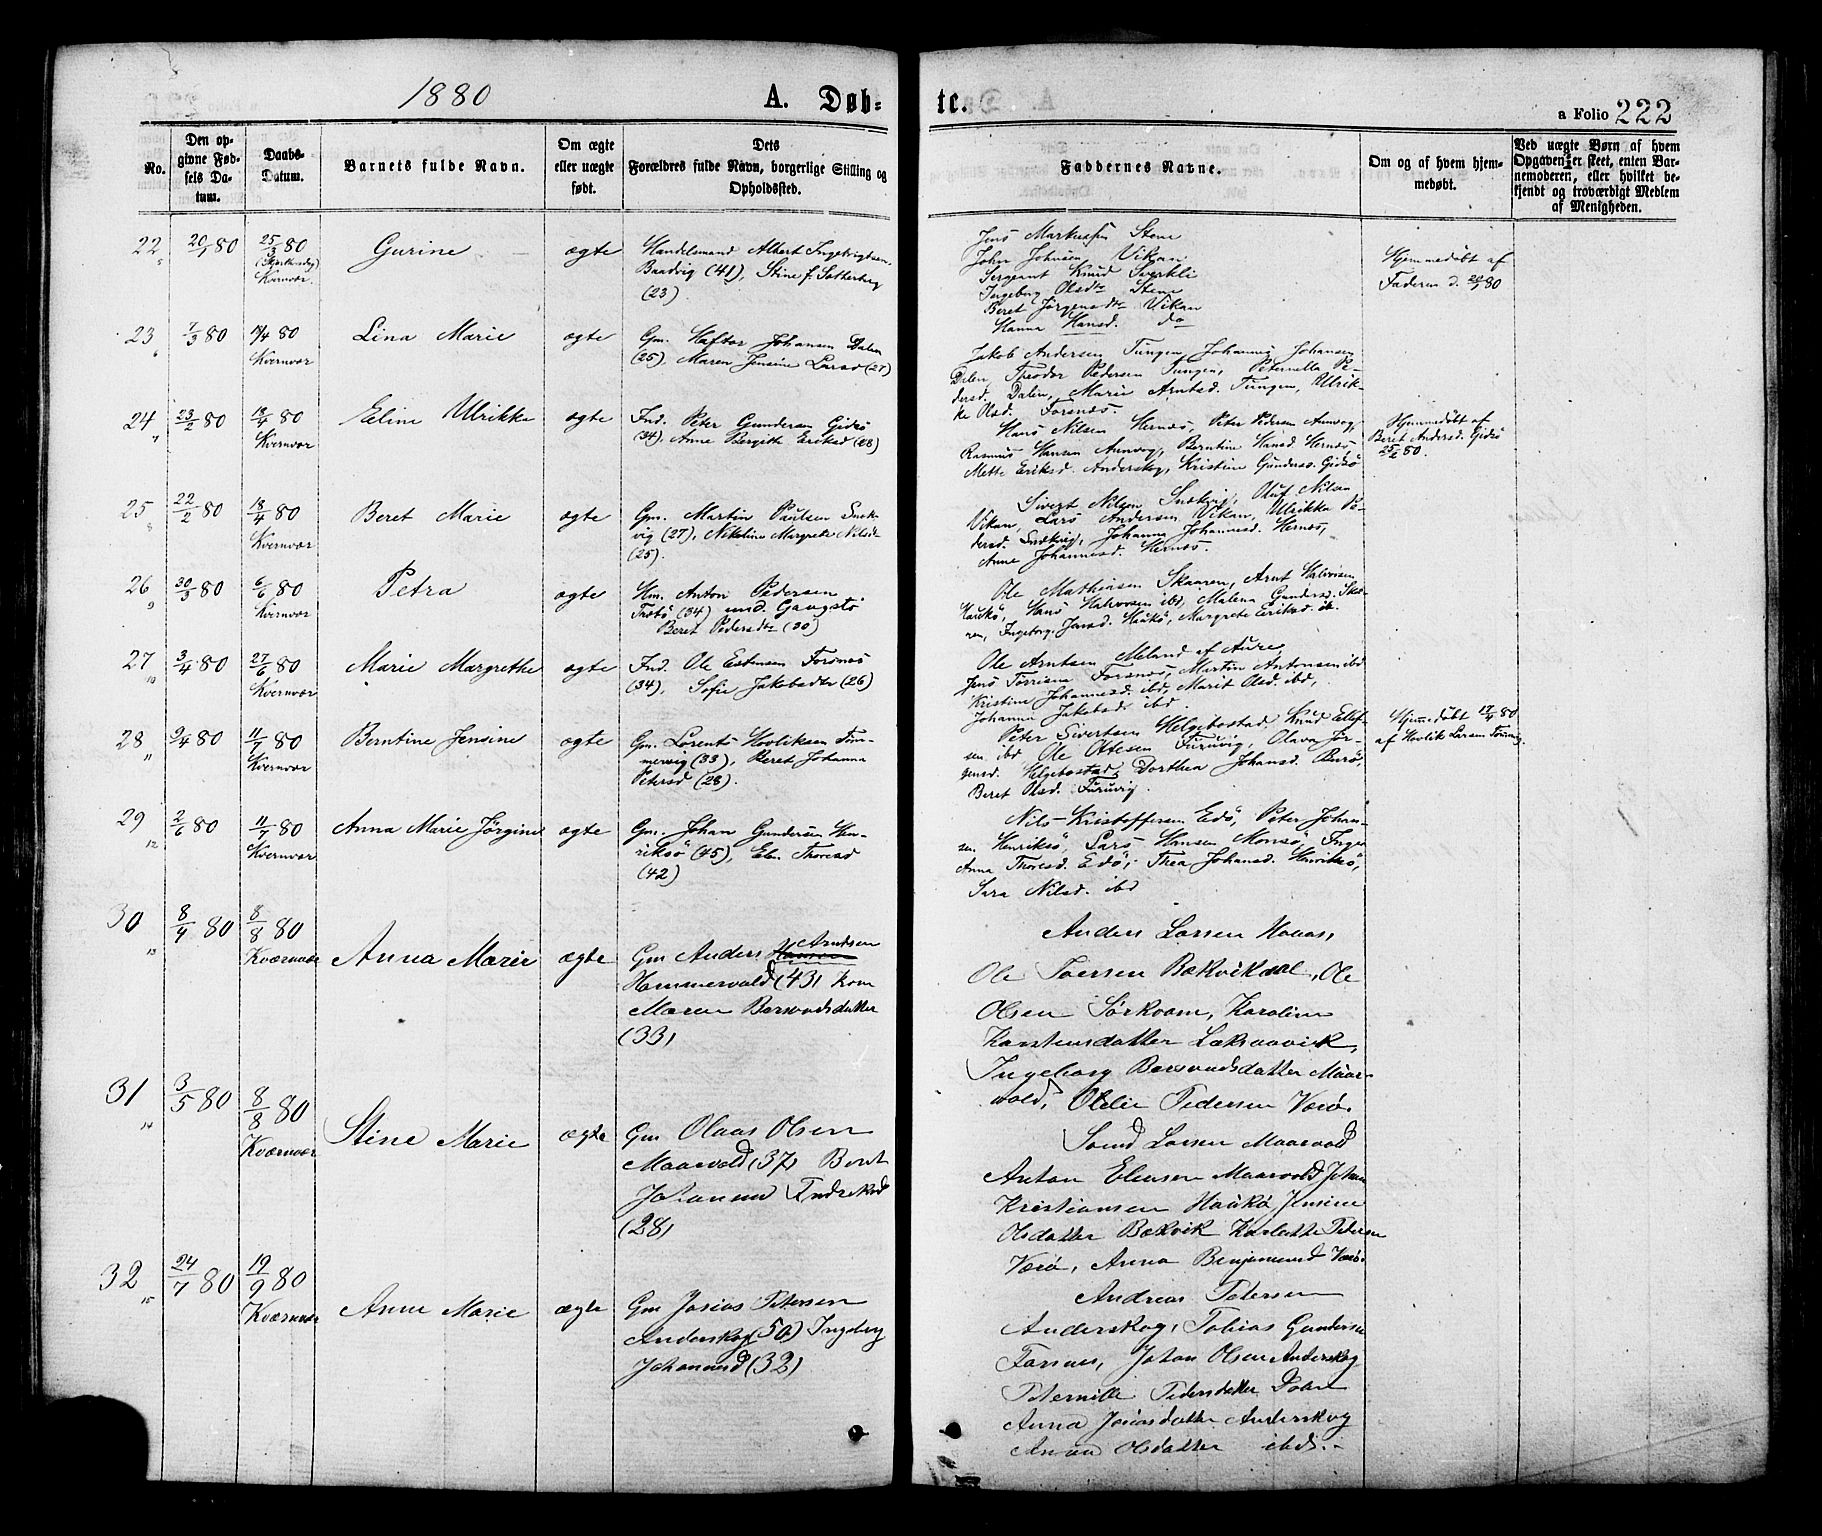 1880
A. Døb-
te.
a Folio 222
No.
Den op-
givne Fød-
sels Da-
tum.
Daabs-
Datum.
Barnets fulde Navn.
Om ægte
eller uægte
født.
Dets
Forældres fulde Navn, borgerlige Stilling og
Opholdssted.
Faddernes Navne.
Om og af hvem hjem-
medøbt.
Ved uægte Børn af hvem
Opgaven er skeet, enten Bar-
nemoderen, eller hvilket be-
kjendt og troværdigt Medlem
af Menigheden.
22
20/1 80
25/3 80
(Skjærthorsdag)
Kvernvær
Gurine
ægte
Handelsmand Albert Ingebrigtsen
Baadvig (41), Stine f. Sætherberg
(23)
Jens Markussen Stene
John Johnsen Vikan
Sergeant Knud Sverkli
Ingeborg Olsdtr Stene
Beret Jørgensdtr Vikan
Hanna Hansd. do
Hjemmedøbt af
Faderen d. 20/1 80
23
7/3 80
18/4 80
Kvernvær
Lina Marie
ægte
Gm. Haftor Johansen Dalen
(25), Maren Jensine Larsd (27)
Jakob Andersen Tungen, Johannes Johansen
Dalen, Theodor Pedersen Tungen, Peternella Pe-
dersd. Dalen, Marie Arntsd. Tungen, Ulrik-
ke Olsd. Forsnæs.
24
23/2 80
18/4 80
Kvernvær
Eline Ulrikke
ægte
Ind. Peter Gundersen Gidsø
(34), Anne Bergith Eriksd (28)
Hans Nilsen Hernæs, Peter Pedersen Aunvog,
Rasmus Hansen Aunvog, Berntine Hansd. Hernæs,
Mette Eriksd. Anderskog, Kristine Gundersd. Gidsø
Hjemmedøbt af
Beret Andersd. Gidsø
25/2 80.
25
22/2 80
18/4 80
Kvernvær
Beret Marie
ægte
Gm. Martin Paulsen Snek-
vig (27), Nikoline Margrete Nilsdtr
(25).
Sivert Nilsen Snekvig, Oluf Nilsen
Vikan, Lars Andersen Vikan, Ulrikka Pe-
dersd. Snekvig, Johanna Johannesd. Hernæs,
Anne Johannesd. Hernæs.
26
30/3 80
6/6 80
Kvernvær
Petra
ægte
Hm. Anton Pedersen
(34) und. Gangstø
Beret Pedersdtr (30)
Ole Mathiasen Skaaren, Arnt Halvorsen
Haukø, Hans Halvorsen ibd, Malena Gundersd. Skaa-
ren, Ingeborg Jensd. Haukø, Margrete Eriksd. ib.
27
3/4 80
27/6 80
Kvernvær
Marie Margrethe
ægte
Ind. Ole Estensen Forsnæs
(34), Sofie Jakobsdtr (26)
Ole Arntsen Meland af Aure
Jens Forsnæs, Martin Antonsen ibd
Kristine Johannesd. ibd, Marit Olsd. ibd,
Johanna Jakobsd. ibd.
28
9/4 80
11/7 80
Kvernvær
Berntine Jensine
ægte
Gm. Lorents Hovliksen Tøm-
mervig (33), Beret Johanna
Petersd (28).
Peter Sivertsen Helgebostad, Knud Ellef-
sen ibd Ole Ottesen Furuvig, Olava Jør-
gensd. Helgebostad, Dorthea Johansd. Burø,
Beret Olsd. Furuvig.
Hjemmedøbt 17/4 80
af Hovlik Larsen Tømmvig.
29
2/6 80
11/7 80
Kvernvær
Anna Marie Jørgine
ægte
Gm. Johan Gundersen Hen-
riksø (45), Elen Thoresd
(42)
Nils Kristoffersen Edø, Peter Johan-
sen Henriksø, Lars Hansen Monsø, Inger
Anna Thoresd. Edø, Thea Johansd. Henriksø,
Sara Nilsd. ibd
30
8/4 80
8/8 80
Kværnvær
Anna Marie
ægte
Gm Anders Arntsen
Hammervold (43) kone
Maren Barvoldsdatter
(33)
Anders Larsen
Ole Toersen Bækvikdal, Ole
Olsen Sørkvam, Karoline
Karstensdatter Laksaavik,
Ingeborg Datter Maar-
vold, Pedersen Værø.
31
3/5 80
8/8 80
Kværnvær
Stine Marie
ægte
Gm Olaus Olsen
Maarvold (37) Beret
Johanna Endreksd
(28)
Larsen Maarvold
Anton Eliasen Maarvold Johan
Kristiansen Haukø Jensine
Olsdatter Bækvik Karlotte Peders
Værø, Anna Benjaminsd Værø.
32
24/7 80
19/9 80
Kværnvær
Anne Marie
ægte
Gm Josias Petersen
Anderskog (50) Ingebrg
Johannesd (32)
Andreas Petersen
Anderskog, Tobias Gundersen
Forsnes, Johan Olsen Anderskog
Peternille Pedersdatter Dalen
Anna Josiasdatter Anderskog
Anna Olsdatter ibd.